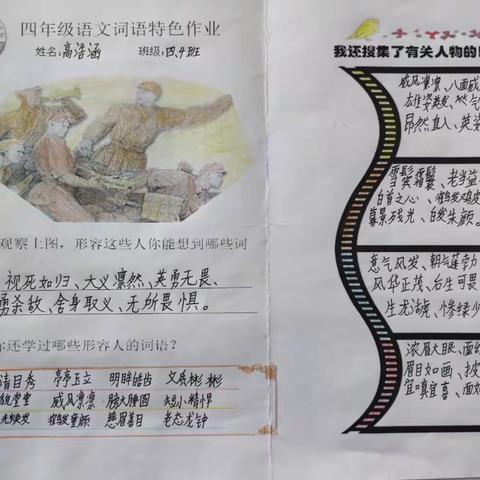 四年级语文词语特色作业
姓名:高浩涵 班级:四.4班
观察上图，形容这些人你能想到哪些词
视死如归、大义凛然、英勇无畏、
勇杀敌、舍身取义、无所畏惧。
你还学过哪些形容人的词语?
清目秀 亭亭玉立 明眸皓齿 文质彬彬
堂堂 威风凛凛 膀大腰圆 短小精悍
光焕发 鹤发童颜 慈眉善目 老态龙钟
我还搜集了有关人物的
威风凛凛、八面威
雄姿英发、
昂然直入、英姿
雪鬓霜鬟、老当益
白首之心、鹤发鸡皮
暮景残光、白发朱颜。
意气风发、朝气蓬勃
风华正茂、后生可畏
生龙活虎、惨绿少
浓眉大眼、面红
眉目如画、披
宜嗔宜喜、面如